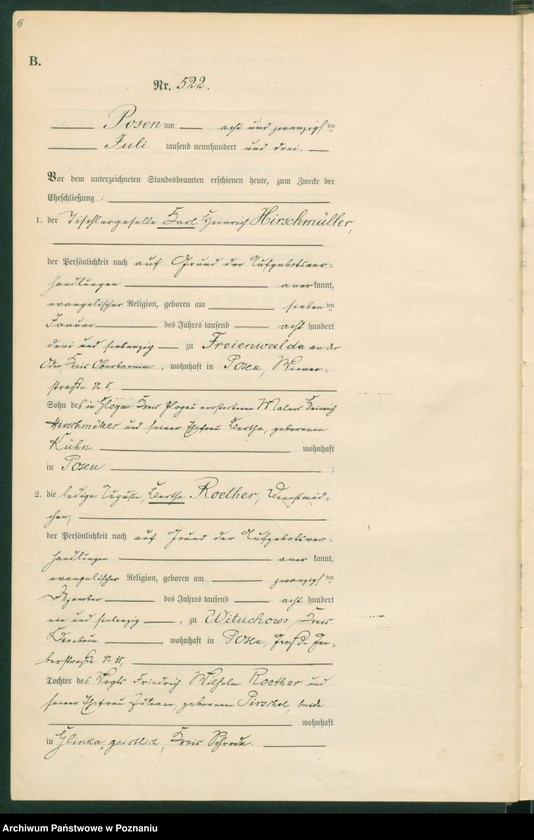 6
B.
Nr. 522.
Posen am acht und zwanzigsten
Juli tausend neunhundert und drei.
Vor dem unterzeichneten Standesbeamten erschienen heute, zum Zwecke der
Eheschließung:
1. der Tischlergeselle Karl Heinrich Hirschmüller,
der Persönlichkeit nach auf Grund der Aufgebotsver-
handlungen anerkannt,
evangelischer Religion, geboren am sieben ten
Januar des Jahres tausend acht hundert
drei und siebenzig zu Freienwalde an der
Oder, Kreis Oberbarnim, wohnhaft in Posen,
straße N 5,
Sohn des in Kreis verstorbenen Malers Heinrich
Hirschmüller und seiner Ehefrau Bertha, geborenen
Kühn wohnhaft
in Posen ;
2. die ledige Auguste, Bertha Roether, Dienstmäd-
chen,
der Persönlichkeit nach auf Grund der Aufgebotsver-
handlungen aner kannt,
evangelischer Religion, geboren am zwanzigsten
Dezember des Jahres tausend acht hundert
ein und siebenzig, zu Wituchowo, Kreis
Birnbaum, wohnhaft in Posen,
berstraße N 11,
Tochter des Vogts Friedrich Wilhelm Roether und
seiner Ehefrau Juliane, geborenen Pirschel, beide
wohnhaft
in Glinka geistlich, Kreis Schroda.
Archiwum Państwowe w Poznaniu